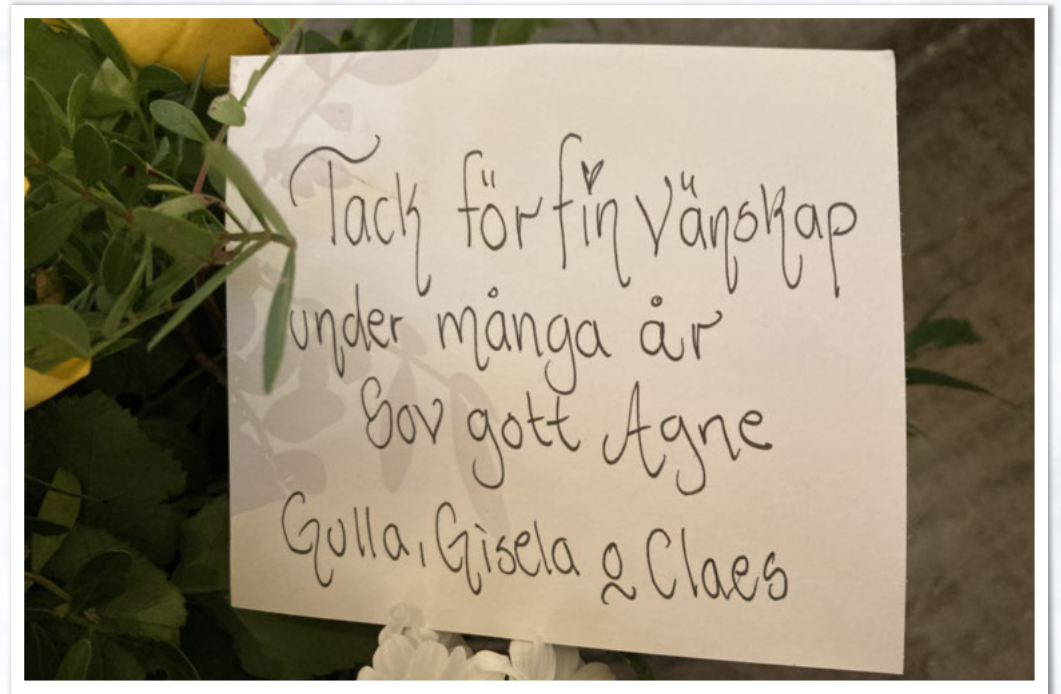 Tack för fin vänskap
under många år
Sov gott Agne
Gulla, Gisela & Claes